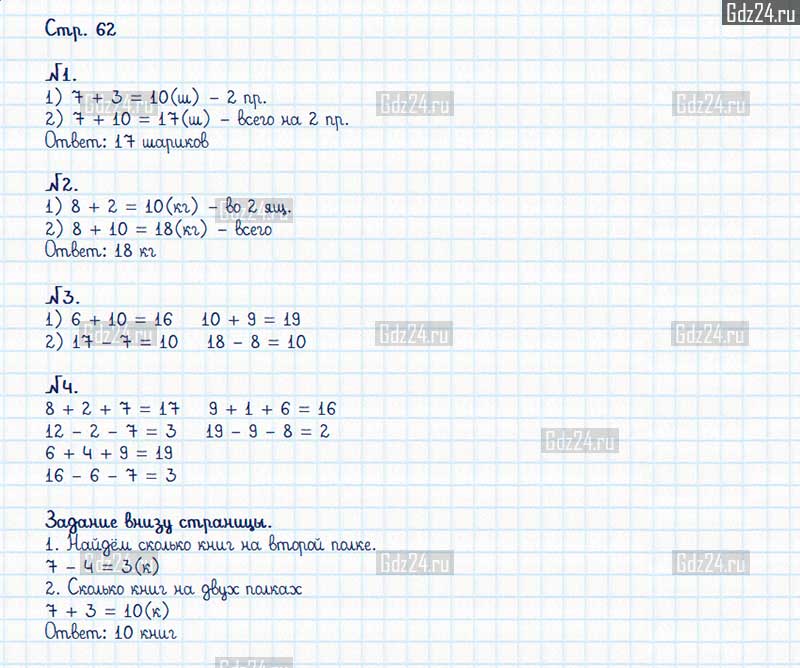 Gdz24.ru
Стр. 62
№1.
1) 7 + 3 = 10(ш) - 2 пр.
2) 7 + 10 = 17(ш) - всего на 2 пр.
Ответ: 17 шариков
Gdz24.ru Gdz24.ru Gdz24.ru
№2.
1) 8 + 2 = 10(кг) - во 2 ящ.
2) 8 + 10 = 18(кг) - всего
Ответ: 18 кг
Gdz24.ru
№3.
1) 6 + 10 = 16 10 + 9 = 19
2) 17 - 7 = 10 18 - 8 = 10
Gdz24.ru Gdz24.ru Gdz24.ru
№4.
8 + 2 + 7 = 17 9 + 1 + 6 = 16
12 - 2 - 7 = 3 19 - 9 - 8 = 2
6 + 4 + 9 = 19
16 - 6 - 7 = 3
Gdz24.ru
Задание внизу страницы.
1. Найдём сколько книг на второй полке.
7 - 4 = 3(к)
Gdz24.ru Gdz24.ru Gdz24.ru
2. Сколько книг на двух полках
7 + 3 = 10(к)
Ответ: 10 книг
Gdz24.ru